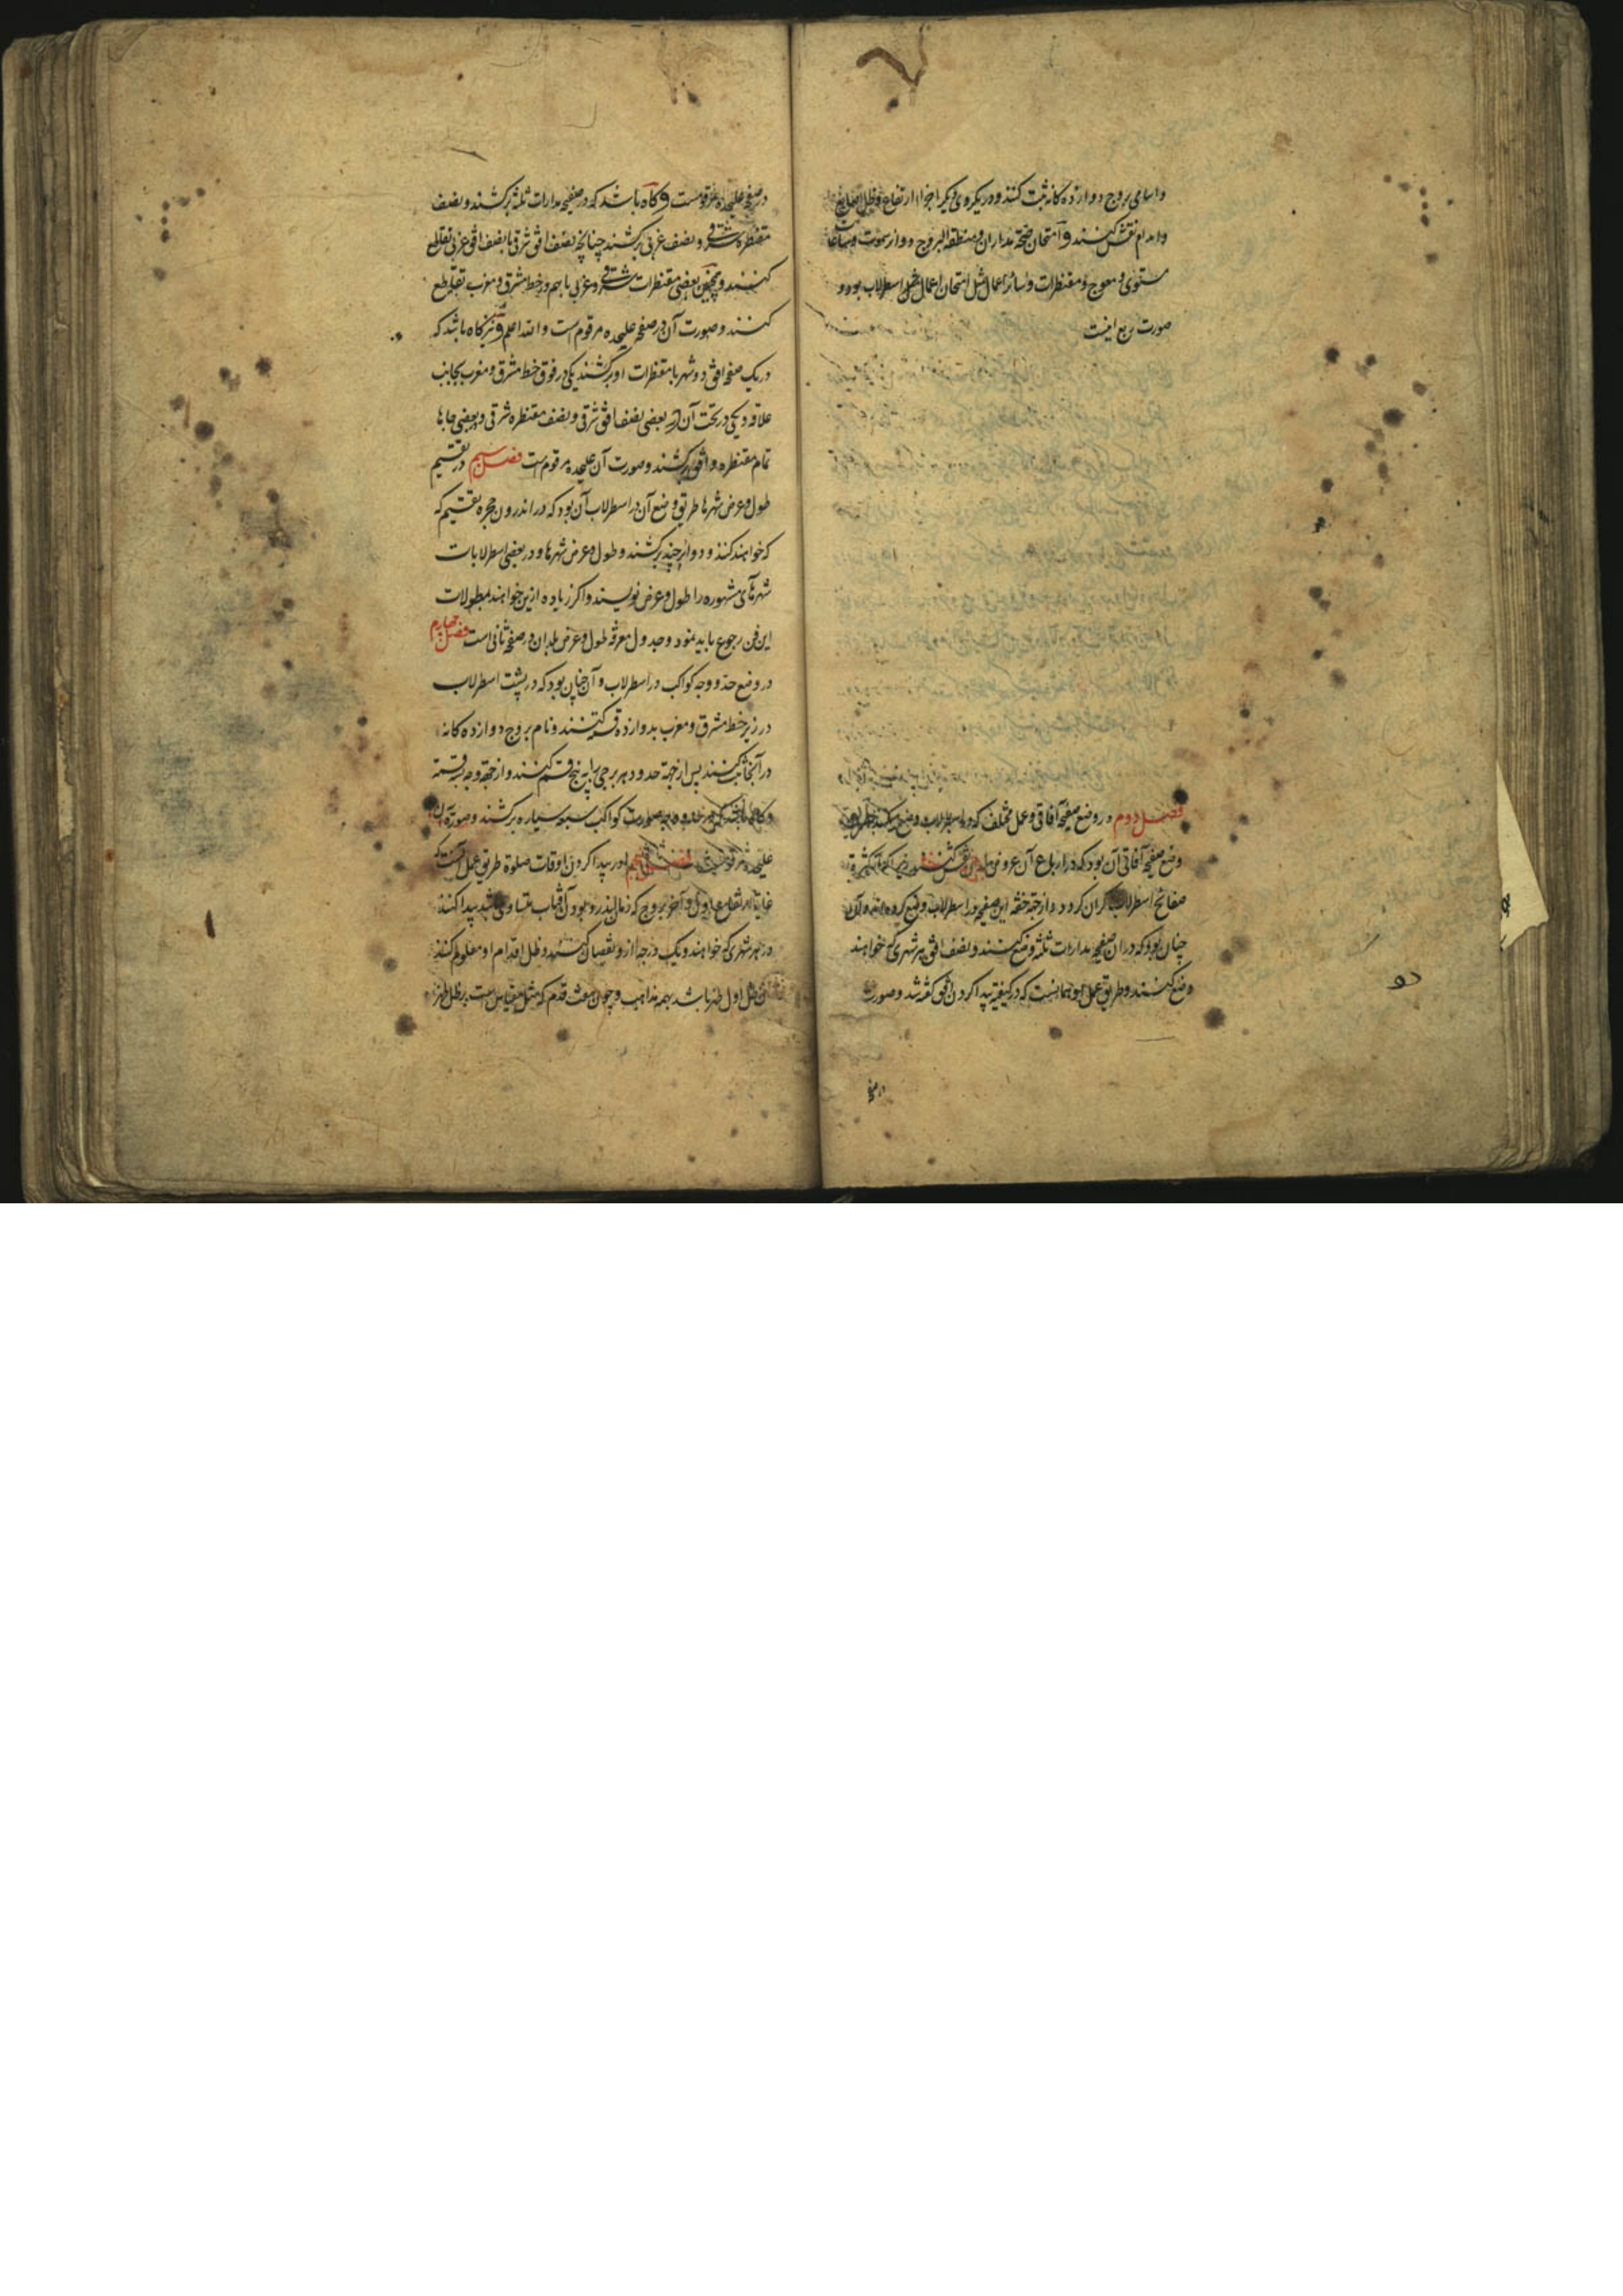 واسامی بروج دوازده کانه ثبت کنند ودر یکروی دیکر اجزاء ارتفاع وظل اصابع
واقدام نقش کنند و امتحان صحة مداران ومنطقة البروج ودوایر سموت وساعات
مستوی و معوج و مقنطرات وسائر اعمال مثل امتحان اعمال اسطرلاب بود و
صورت ربع اینست
فصل دوم در وضع صفیحه آفاقی وعمل مختلف که در اسطرلاب وضع کنند
وضع صفیحه آفاقی آن بود که در ارباع آن عروض
صفائح اسطرلاب کران کردد و از جهة خفة این صفیحه در اسطرلاب وضع کرده اند و آن
چنان بود که در ان صفیحه مدارات ثلثه وضع کنند ونصف افق هر شهری که خواهند
وضع کنند وطریق عمل او همانست که در کیفیة پیدا کردن افق کفته شد وصورت
در صفحه
در صفحه علیحده مرقومست و کاه باشد که در صفیحه مدارات ثلثه برکشند ونصف
مقنطره شرقی و نصف غربی برکشند چنانچه نصف افق شرقی با نصف افق غربی تقاطع
کنند وهمچنین بعضی مقنطرات شرقی وغربی باهم در خط مشرق ومغرب تقاطع
کنند وصورت آن در صفحه علیحده مرقوم است والله اعلم و نیز کاه باشد که
در یک صفحه افق دو شهر با مقنطرات او برکشند یکی در فوق خط مشرق ومغرب بجانب
علاقه ویکی در تحت آن در بعضی نصف افق شرقی ونصف مقنطره شرقی وبعضی جابا
تمام مقنطره وافق برکشند وصورت آن علیحده مرقوم است فصل سیم در تقسیم
طول وعرض شهرها طریق وضع آن در اسطرلاب آن بود که در اندرون حجره تقسیم که
که خواهند کنند و دوایر چند برکشند وطول وعرض شهرها ودر بعضی اسطرلابات
شهرهآی مشهوره را طول وعرض نویسند واکر زیاده ازین خواهند بمطولات
این فن رجوع باید نمود وجدول معرفة طول وعرض بلدان در صفحه ثانی است فصل چهارم
در وضع حد ووجه کواکب در اسطرلاب وآن چنان بود که در پشت اسطرلاب
در زیر خط مشرق ومغرب بدوازده قسم کنند ونام بروج دوازده کانه
در آنجا ثبت کنند پس از جهة حدود هر برجی را به پنج قسم کنند واز جهة وجه بسه قسمة
وکاه باشد که صورت کواکب سبعه سیاره برکشند وصورة آن
علیحده مرقومست فصل پنجم در پیدا کردن اوقات صلوة طریق عمل آنست که
غایة ارتفاع اول وآخر بروج که زمان بدر رود آفتاب متساوی باشد پیدا کنند
در هر شهری که خواهند ویک درجه از او نقصان کنند وظل اقدام او معلوم کنند
آن ظل اول ظهر باشد بهمه مذاهب وچون هفت قدم که مثل مقیاس است بر ظل ظهر